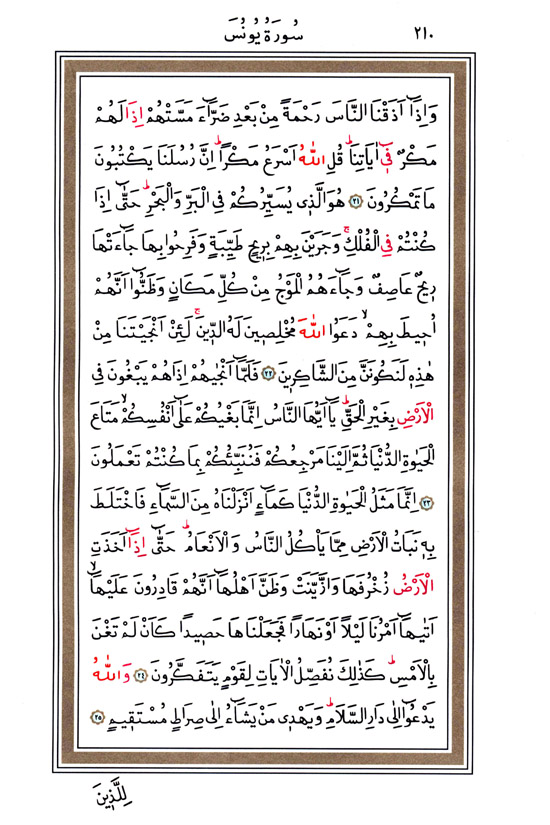 ٢١٠
سُورَةُ يُونُسَ
وَاِذَٓا اَذَقْنَا النَّاسَ رَحْمَةً مِنْ بَعْدِ ضَرَّٓاءَ مَسَّتْهُمْ اِذَا لَهُمْ
مَكْرٌ ف۪ٓي اٰيَاتِنَاۜ قُلِ اللّٰهُ اَسْرَعُ مَكْرًاۜ اِنَّ رُسُلَنَا يَكْتُبُونَ
مَا تَمْكُرُونَ ﴿٢١﴾ هُوَ الَّذ۪ي يُسَيِّرُكُمْ فِي الْبَرِّ وَالْبَحْرِۜ حَتّٰٓى اِذَا
كُنْتُمْ فِي الْفُلْكِۚ وَجَرَيْنَ بِهِمْ بِر۪يحٍ طَيِّبَةٍ وَفَرِحُوا بِهَا جَٓاءَتْهَا
ر۪يحٌ عَاصِفٌ وَجَٓاءَهُمُ الْمَوْجُ مِنْ كُلِّ مَكَانٍ وَظَنُّٓوا اَنَّهُمْ
اُح۪يطَ بِهِمْۙ دَعَوُا اللّٰهَ مُخْلِص۪ينَ لَهُ الدّ۪ينَۚ لَئِنْ اَنْجَيْتَنَا مِنْ
هٰذِه۪ لَنَكُونَنَّ مِنَ الشَّاكِر۪ينَ ﴿٢٢﴾ فَلَمَّٓا اَنْجٰيهُمْ اِذَا هُمْ يَبْغُونَ فِي
الْاَرْضِ بِغَيْرِ الْحَقِّۜ يَٓا اَيُّهَا النَّاسُ اِنَّمَا بَغْيُكُمْ عَلٰٓى اَنْفُسِكُمْۙ مَتَاعَ
الْحَيٰوةِ الدُّنْيَا ثُمَّ اِلَيْنَا مَرْجِعُكُمْ فَنُنَبِّئُكُمْ بِمَا كُنْتُمْ تَعْمَلُونَ
﴿٢٣﴾ اِنَّمَا مَثَلُ الْحَيٰوةِ الدُّنْيَا كَمَٓاءٍ اَنْزَلْنَاهُ مِنَ السَّمَٓاءِ فَاخْتَلَطَ
بِه۪ نَبَاتُ الْاَرْضِ مِمَّا يَأْكُلُ النَّاسُ وَالْاَنْعَامُۜ حَتّٰٓى اِذَٓا اَخَذَتِ
الْاَرْضُ زُخْرُفَهَا وَازَّيَّنَتْ وَظَنَّ اَهْلُهَٓا اَنَّهُمْ قَادِرُونَ عَلَيْهَٓاۙ
اَتٰيهَٓا اَمْرُنَا لَيْلًا اَوْ نَهَارًا فَجَعَلْنَاهَا حَص۪يدًا كَاَنْ لَمْ تَغْنَ
بِالْاَمْسِۜ كَذٰلِكَ نُفَصِّلُ الْاٰيَاتِ لِقَوْمٍ يَتَفَكَّرُونَ ﴿٢٤﴾ وَاللّٰهُ
يَدْعُٓوا اِلٰى دَارِ السَّلَامِۜ وَيَهْد۪ي مَنْ يَشَٓاءُ اِلٰى صِرَاطٍ مُسْتَق۪يمٍ ﴿٢٥﴾
لِلَّذ۪ينَ